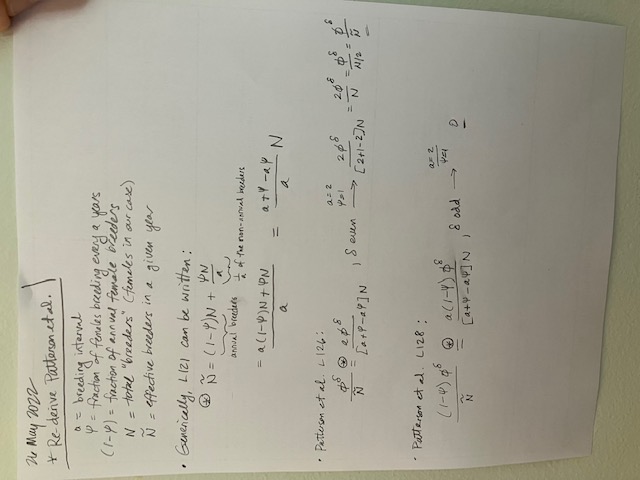 26 May 2022
* Re-derive Patterson et al.
a = breeding interval
Ψ = fraction of females breeding every a years
(1-Ψ) = fraction of annual female breeders
N = total "breeders" (females in our case)
Ñ = effective breeders in a given year
• Generically, L121 can be written:
⊛ Ñ = (1-Ψ)N + ΨN/a
annual breeders 1/a of the non-annual breeders
= a(1-Ψ)N + ΨN / a = a+Ψ-aΨ / a N
• Patterson et al. L126:
ϕ^δ / Ñ ⊛= aϕ^δ / [a+Ψ-aΨ]N , δ even a=2 Ψ=1 → 2ϕ^δ / [2+1-2]N = 2ϕ^δ / N = ϕ^δ / N/2 = ϕ^δ / Ñ
• Patterson et al. L128:
(1-Ψ)ϕ^δ / Ñ ⊛= a(1-Ψ)ϕ^δ / [a+Ψ-aΨ]N , δ odd a=2 Ψ=1 → 0